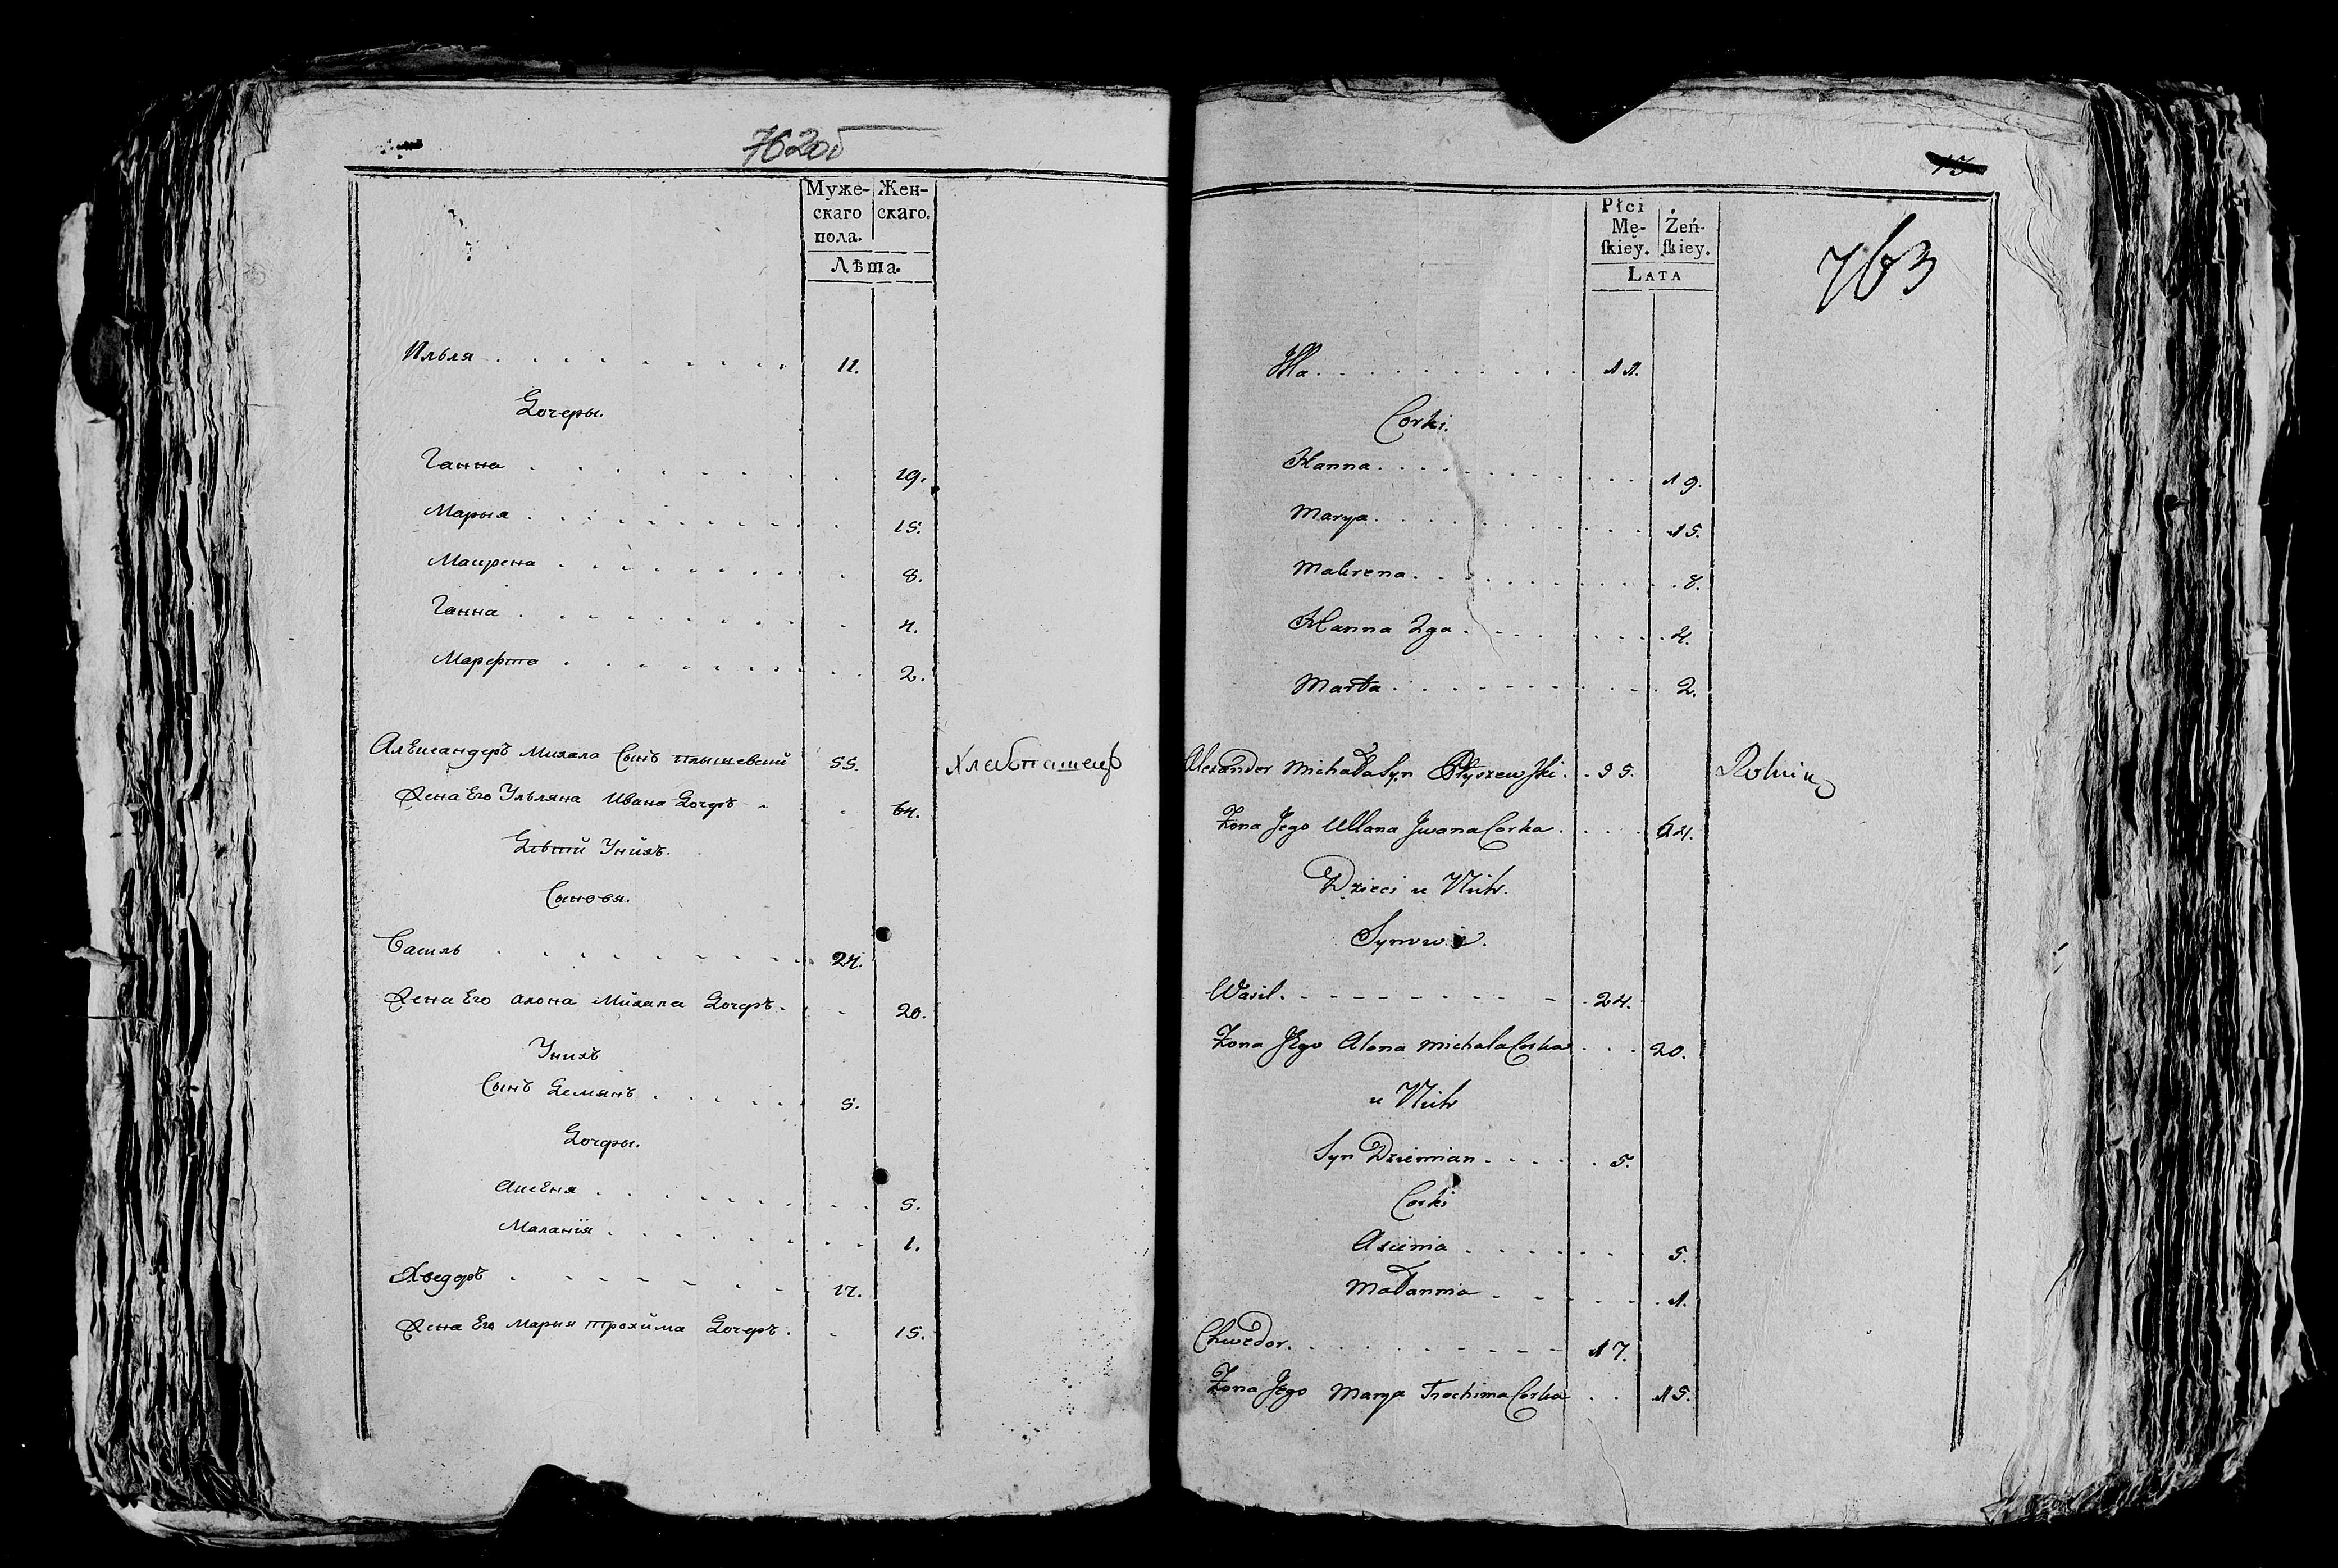 762об
Муже- Жен-
скаго скаго.
пола.
Лѣта.
Илья 11.
Дочеры.
Ганна 19.
Марья 15.
Маврена 8.
Ганна 4.
Марфта 2.
Александеръ Михала Сынъ Плышевский 55. Хлебопашецъ
Жена Его Ульляна Ивана Дочеръ 64.
Дѣтй Унихъ.
Сыновя.
Василь 24.
Жена Его Алона Михала Дочеръ. 20.
Унихъ
Сынъ Демянъ 5.
Дочеры.
Аксеня 5.
Маланія 1.
Хведоръ 17.
Жена Его Марья Трохйма Дочеръ. 15.
13
763
Płci
Mę- Żeń-
ſkiey. ſkiey.
LATA
Illa 11.
Corki.
Hanna 19.
Marya 15.
Makrena 8.
Hanna 2ga 4.
Marta 2.
Alexander Michała Syn Płyszewski 55. Rolnik
Zona Jego Ullana Jwana Corka 64.
Dzieci u Nich.
Synowie.
Wasil. 24.
Zona Jego Alona Michala Corka 20.
u Nich
Syn Dziemian 5.
Corki
Axienia 5.
Małannia 1.
Chwedor. 17.
Zona Jego Marya Trochima Corka 15.